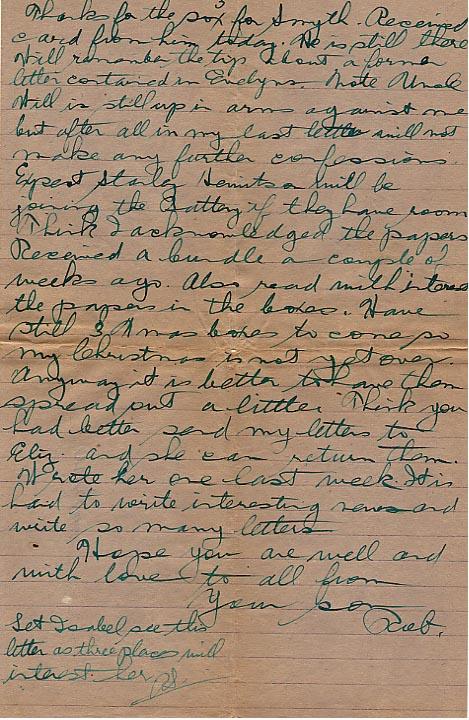 3
Thanks for the sox for Smyth. Received
card from him today. He is still there
Will remember the tip about a former
letter contained in Evelyns. Note Uncle
Will is still up in arms against me
but after all in my last letter will not
make any further confessions.
Expect Stanley will be
joining the Battery if they have room
Think I acknowledged the papers
Received a bundle a couple of
weeks ago. Also read with interest
the papers in the boxes. Have
still 3 Xmas boxes to come so
my Christmas is not yet over.
Anyway it is better to have them
spread out a little. Think you
had better send my letters to
Eliz. and she can return them.
Wrote her one last week. It is
hard to write interesting news and
write so many letters
Hope you are well and
with love to all from
Your son
Rob.
Let Isabel see this
letter as three places will
interest her